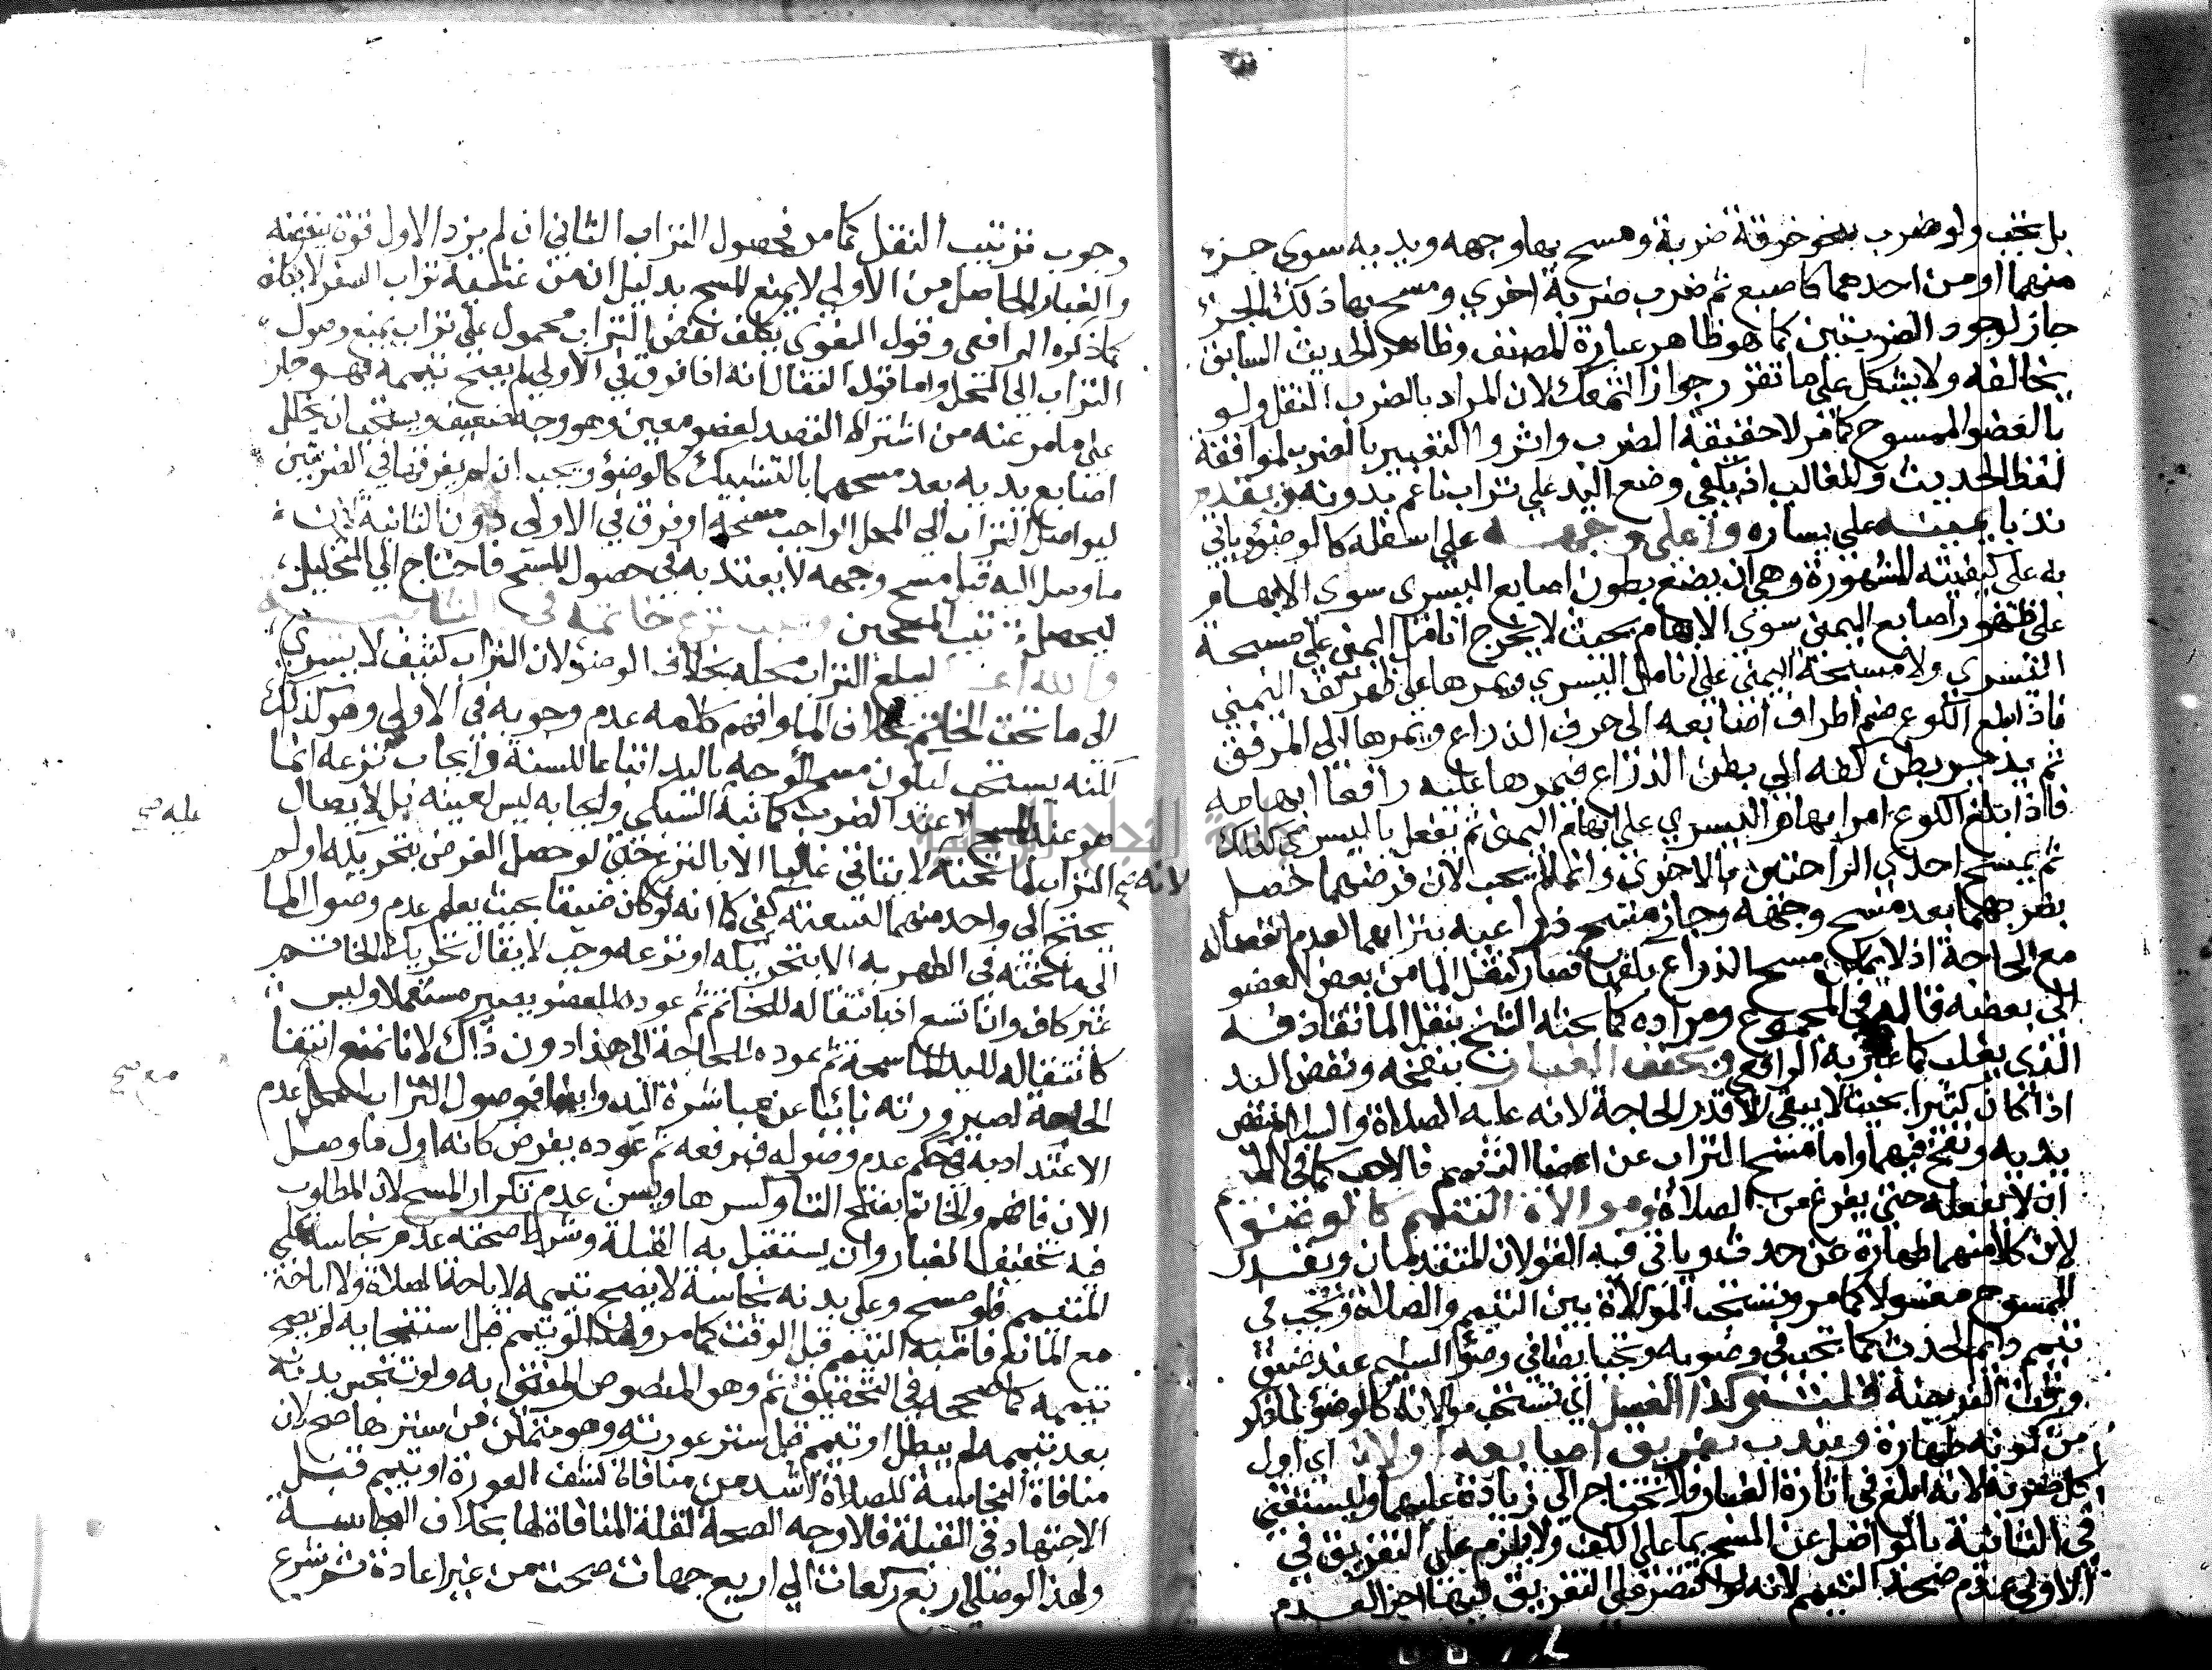 بل يجب ولو ضرب بنحو خرقة ضربة ومسح بها وجهه ويديه سوى جزء
منهما او من احدهما كاصبع ثم ضرب ضربة اخرى ومسح بها ذلك الجزء
جاز لوجود الضربتين كما هو ظاهر عبارة المصنف وظاهر الحديث السابق
يخالفه ولا يشكل على ما تقرر جواز التمعك لان المراد بالضرب النقل ولو
بالعضو الممسوح كما مر لا حقيقة الضرب واثروا التعبير بالضرب لموافقة
لفظ الحديث وللغالب اذ يكفي وضع اليد على تراب ناعم بدونه ويقدم
ندبا يمينه على يساره واعلى وجهه على اسفله كالوضوء وياتي
به على كيفيته المشهورة وهي ان يضع بطون اصابع اليسرى سوى الابهام
على ظهور اصابع اليمنى سوى الابهام بحيث لا يخرج انامل اليمنى على مسبحة
اليسرى ولا مسبحة اليمنى على انامل اليسرى ويمرها على ظهر كف اليمنى
فاذا بلغ الكوع ضم اطراف اصابعه الى حرف الذراع ويمرها الى المرفق
ثم يدير بطن كفه الى بطن الذراع فيمرها عليه رافعا ابهامه
فاذا بلغ الكوع امر ابهام اليسرى على ابهام اليمنى ثم يفعل باليسرى كذلك
ثم يمسح احدى الراحتين بالاخرى وانما لم يجب لان فرضهما حصل
بضربهما بعد مسح وجهه وجاز مسح ذراعيه بترابهما لعدم انفصاله
مع الحاجة اذ لا يمكن مسح الذراع بكفها فصار كنقل الما من بعض العضو
الى بعضه قاله في المجموع ومراده كما بحثه الشيخ بنقل الما تقاذفه
الذي يغلب كما عبر به الرافعي ويخفف الغبار بنفخه ونفض اليد
اذا كان كثيرا بحيث لا يبقى الا قدر الحاجة لانه عليه الصلاة والسلام نفض
يديه ونفخ فيهما واما مسح التراب عن اعضا التيمم فالاحب كما في الام
ان لا يفعله حتى يفرغ من الصلاة وموالاة التيمم كالوضوء
لان كلا منهما طهارة عن حدث وياتي فيه القولان المتقدمان ويقدر
الممسوح مغسولا كما مر وتستحب الموالاة بين التيمم والصلاة وتجب في
تيمم دائم الحدث كما تجب في وضوئه وتجب ايضا في وضو السليم عند ضيق
وقت الفريضة قلت وكذا الغسل اي تستحب موالاته كالوضوء لما ذكر
من كونه طهارة ويندب تفريق اصابعه اولا اي اول
كل ضربة لانه ابلغ في اثارة الغبار فلا يحتاج الى زيادة عليهما وليستغني
في الثانية بالواصل عن المسح بما على الكف ولا يلزم على التفريق في
الاولى عدم صحة التيمم لانه لو اقتصر على التفريق فيها اجزا لعدم
وجوب ترتيب النقل كما مر فحصول التراب الثاني ان لم يزد الاول قوة لم ينقصه
والغبار الحاصل من الاولى لا يمنع المسح بدليل ان من غشيه تراب السفر لا يكلف
كما ذكره الرافعي وقول البغوي يكلف نفض التراب محمول على تراب يمنع وصول
التراب الى المحل واما قول القفال انه اذا فرق في الاولى لم يصح تيممه فهو جار
على ما مر عنه من اشتراط القصد لعضو معين وهو وجه ضعيف ويستحب ان يخلل
اصابع يديه بعد مسحهما بالتشبيك كالوضوء ويجب ان لم يفرقها في الضربتين
ليواصل التراب الى المحل الواجب مسحه او فرق في الاولى دون الثانية لان
ما وصل اليه قبل مسح وجهه لا يعتد به في حصول المسح فاحتاج الى التخليل
ليحصل ترتيب المسحين ويجب نزع خاتمه في الثانية
والله اعلم ليبلغ التراب محله بخلافه في الوضوء لان التراب كثيف لا يسري
الى ما تحت الخاتم بخلاف الما وافهم كلامه عدم وجوبه في الاولى وهو كذلك
لكنه يستحب ليكون مسح الوجه باليد اتباعا للسنة وايجاب نزعه انما
هو عند المسح لا عند الضرب كما نبه عليه صح السبكي وايجابه ليس لعينه بل لايصال
التراب لما تحته لانه صح لا يتاتى غالبا الا بالنزع حتى لو حصل الفرض بتحريكه او لم
يحتج الى واحد منهما لسعته كفى كما انه لو كان ضيقا بحيث يعلم عدم وصول الما
الى ما تحته في الطهر به الا بتحريكه او نزعه وجب لا يقال تحريك الخاتم
غير كاف وان اتسع اذ بانتقاله للخاتم ثم عوده للعضو يصير مستعملا وليس
كانتقاله لليد الماسحة ثم عوده للحاجة الى هذا دون ذاك لانا نمنع انتفا
الحاجة لصيرورته نائبا عن مباشرة اليد وايضا فوصول التراب لمحل مع صح عدم
الاعتداد به في حكم عدم وصوله فيرفعه ثم عوده يفرض كانه اول ما وصل
الان فافهم والخاتم بفتح التا وكسرها ويسن عدم تكرار المسح لان المطلوب
فيه تخفيف الغبار وان يستقبل به القبلة وشرط صحته عدم نجاسة على
المتيمم فلو مسح وعلى بدنه نجاسة لا يصح تيممه لانه لاباحة الصلاة ولا اباحة
مع المانع فاشبه التيمم قبل الوقت كما مر ولهذا لو تيمم قبل استنجائه لم يصح
تيممه كما صححه في التحقيق ثم وهو المنصوص المفتى به ولو تنجس بدنه
بعد تيممه لم يبطل او تيمم قبل ستر عورته وهو متمكن من سترها صح لان
منافاة النجاسة للصلاة اشد من منافاة كشف العورة او تيمم قبل
الاجتهاد في القبلة فالاوجه الصحة لقلة المنافاة لها بخلاف النجاسة
ولهذا لو صلى اربع ركعات الى اربع جهات صحت من غير اعادة ثم شرع